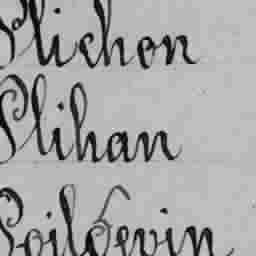 Plichon
Plihan
Poildevin